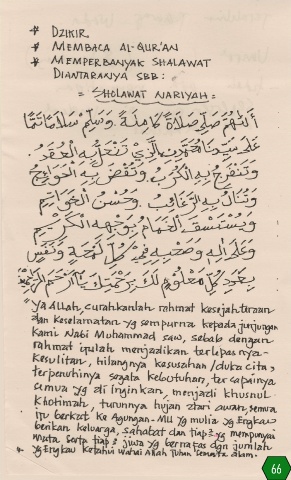 * DZIKIR.
* MEMBACA AL-QUR'AN
* MEMPERBANYAK SHALAWAT
DIANTARANYA SBB:
= SHOLAWAT NARIYAH =
اللهم صل صلاة كاملة وسلم سلاما تاما
على سيدنا محمد الذي تنحل به العقد
وتنفرج به الكرب وتقضى به الحوائج
وتنال به الرغائب وحسن الخواتم
ويستسقى الغمام بوجهه الكريم
وعلى اله وصحبه في كل لمحة ونفس
بعدد كل معلوم لك برحمتك يا ارحم الرحمين
"Ya Allah, curahkanlah rahmat kesejahteraan
dan keselamatan yg sempurna kepada junjungan
kami Nabi Muhammad saw, sebab dengan
rahmat itulah menjadikan terlepasnya-
kesulitan, hilangnya kesusahan/duka cita,
terpenuhinya segala kebutuhan, tercapainya
semua yg di inginkan, menjadi khusnul
khotimah, turunnya hujan dari awan, semua
itu berkat ke Agungan-MU yg mulia yg Engkau
berikan keluarga, sahabat dan tiap² yg mempunyai
mata. Serta tiap² jiwa yg bernafas dgn jumlah
yg Engkau ketahui wahai Allah Tuhan semesta alam.
66